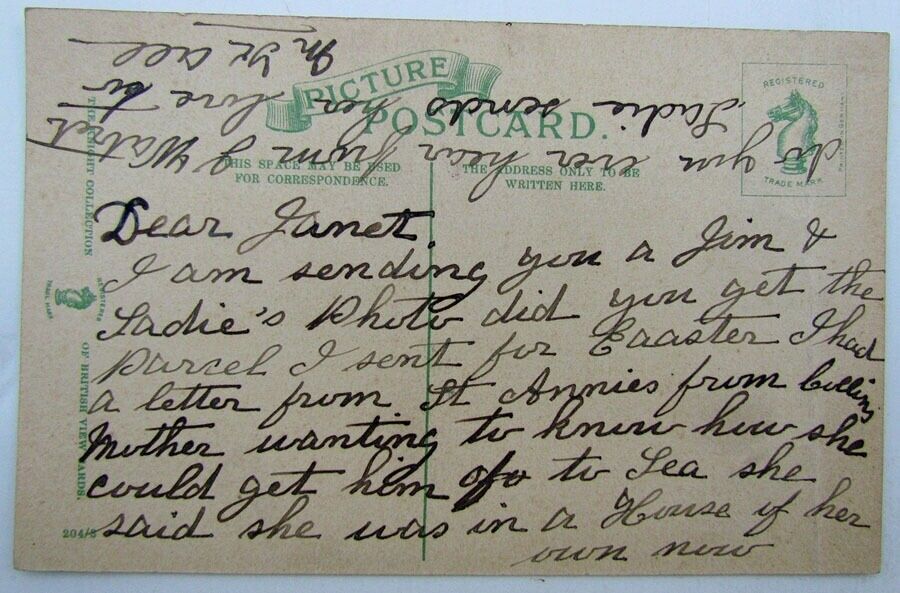 PICTURE
POSTCARD.
REGISTERED
TRADE MARK
PRINTED IN GERMANY
THIS SPACE MAY BE USED
FOR CORRESPONDENCE.
THE ADDRESS ONLY TO BE
WRITTEN HERE.
THE KNIGHT COLLECTION
REGISTERED
TRADE MARK
OF BRITISH VIEW CARDS.
204/8
Dear Janet
I am sending you a Jim &
Sadie's Photo did you get the
Parcel I sent for Eaaster I had
a letter from St Annies from
Mother wanting to know how she
could get him of to Sea she
said she was in a House of her
own now
do you ever hear from J
Sadie sends her love to
all